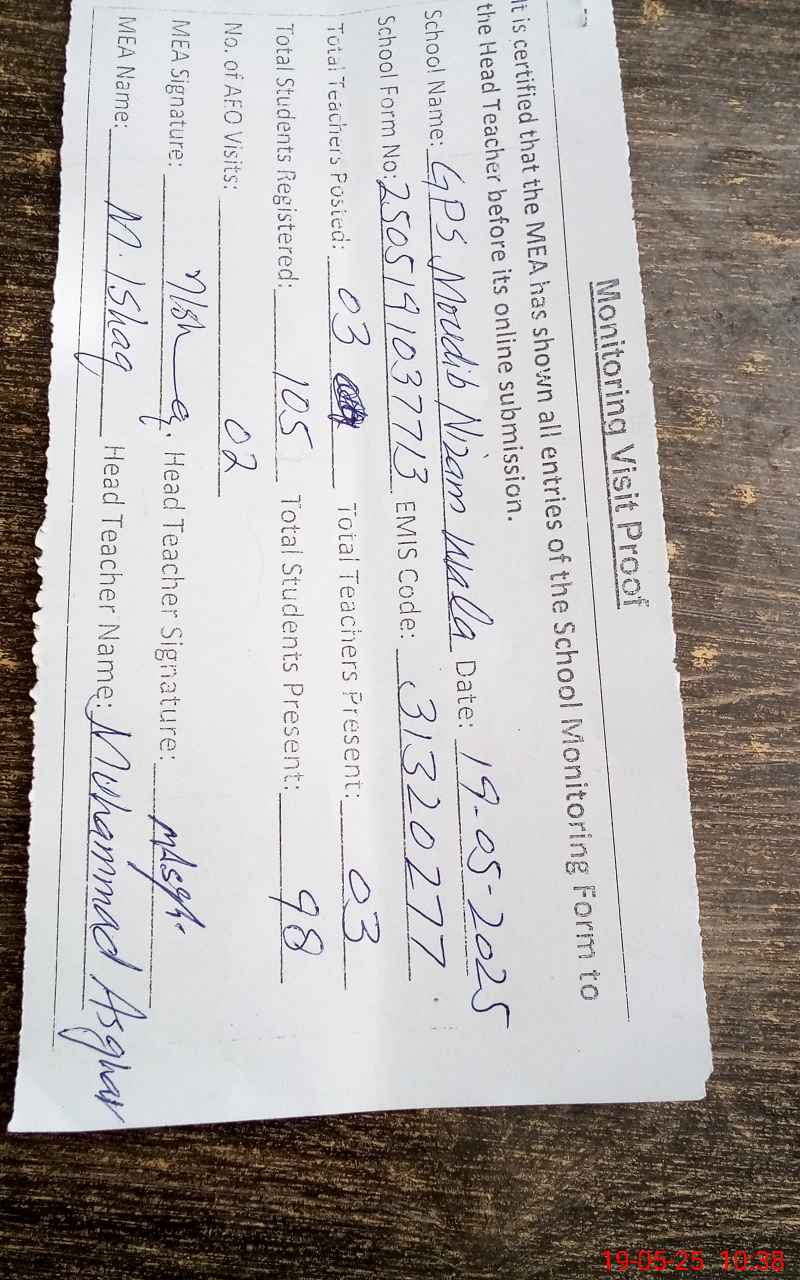 Monitoring Visit Proof
It is certified that the MEA has shown all entries of the School Monitoring Form to
the Head Teacher before its online submission.
School Name: GPS Moudib Nizam Wala Date: 19-05-2025
School Form No: 2505191037713 EMIS Code: 31320277
Total Teachers Posted: 03 Total Teachers Present: 03
Total Students Registered: 105 Total Students Present: 98
No. of AEO Visits: 02
MEA Signature: Head Teacher Signature: MAsghar
MEA Name: M. Ishaq Head Teacher Name: Muhammad Asghar
19-05-25 10:38